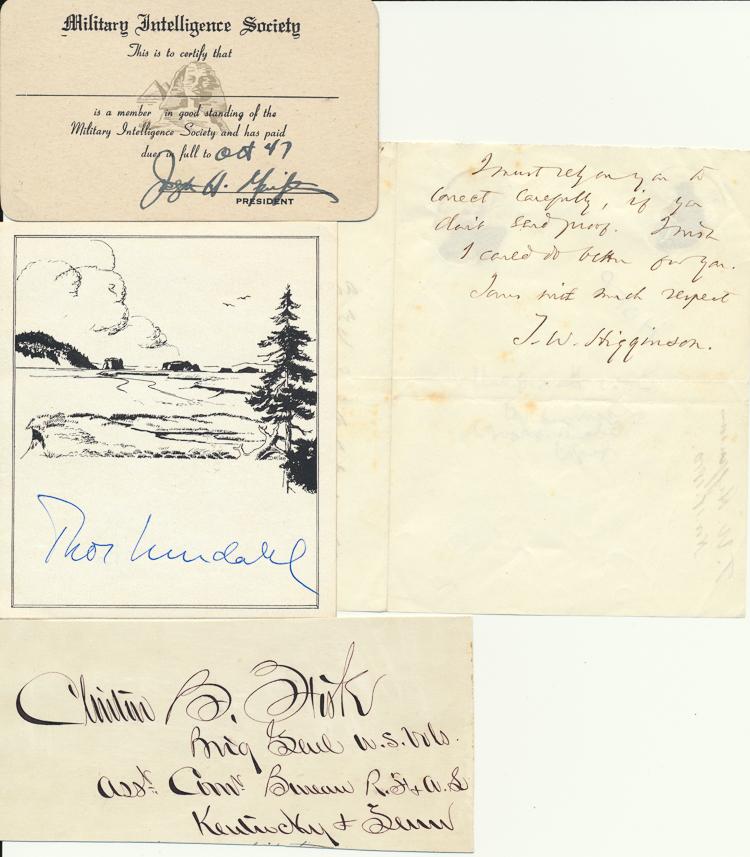 Military Intelligence Society
This is to certify that
is a member in good standing of the
Military Intelligence Society and has paid
dues in full to Oct 47
Joseph H.
PRESIDENT
I must rely on you to
correct carefully, if you
don't send proof. I wish
I could do better for you.
Yours with much respect
T. W. Higginson.
Thor
Clinton B. Fisk
Brig Genl U.S. Vols.
Asst. Comr Bureau R. F. & A. L
Kentucky & Tenn